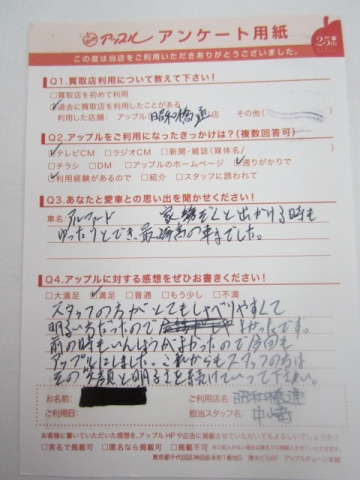 アップル アンケート用紙
25th
この度は当店をご利用いただきありがとうございました。
Q1.買取店利用について教えて下さい!
□買取店を初めて利用
□過去に買取店を利用したことがある
利用した店舗: アップル(昭和橋通)店 その他(
Q2.アップルをご利用になったきっかけは?(複数回答可)
□テレビCM □ラジオCM □新聞・雑誌(媒体名/
□チラシ □DM □アップルのホームページ □通りがかりで
□利用経験があるので □紹介 □スタッフに誘われて
Q3.あなたと愛車との思い出を聞かせください!
車名:アルファード 家族そろと出かける時も
ゆったりとでき、最高の車でした。
Q4.アップルに対する感想をぜひお書きください!
□大満足 □満足 □普通 □もう少し □不満
スタッフの方がとてもしゃべりやすくて
明るい方だったので よかったです。
前の時もいんしょうがよかったので今回も
アップルにしました。これからもスタッフの方は
その笑顔と明るさを続けていって下さい。
お名前: ご利用店名:昭和橋通
ご利用日: 担当スタッフ名:中崎
お客様に書いていただいた感想を、アップルHPや広告に掲載させていただいてもよろしいでしょうか?
□実名で掲載可 □匿名なら掲載可 □掲載不可